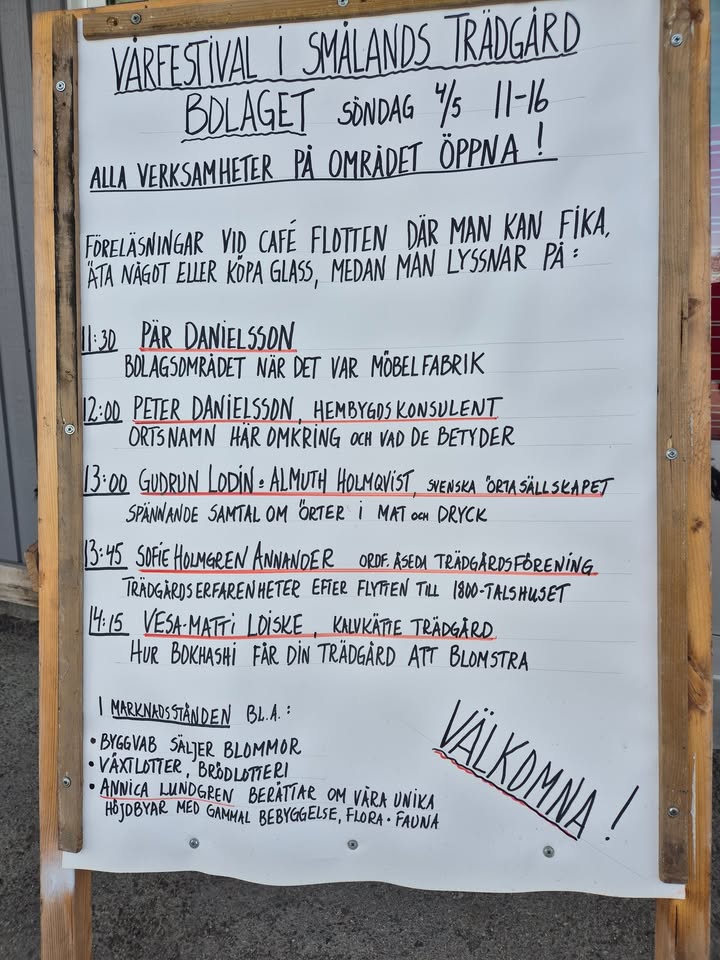 VÅRFESTIVAL I SMÅLANDS TRÄDGÅRD
BOLAGET SÖNDAG 4/5 11-16
ALLA VERKSAMHETER PÅ OMRÅDET ÖPPNA !
FÖRELÄSNINGAR VID CAFÉ FLOTTEN DÄR MAN KAN FIKA,
ÄTA NÅGOT ELLER KÖPA GLASS, MEDAN MAN LYSSNAR PÅ :
11:30 PÄR DANIELSSON
BOLAGSOMRÅDET NÄR DET VAR MÖBELFABRIK
12:00 PETER DANIELSSON, HEMBYGDSKONSULENT
ORTSNAMN HÄR OMKRING OCH VAD DE BETYDER
13:00 GUDRUN LODIN & ALMUTH HOLMQVIST, SVENSKA ÖRTASÄLLSKAPET
SPÄNNANDE SAMTAL OM ÖRTER I MAT OCH DRYCK
13:45 SOFIE HOLMGREN ANNANDER ORDF. ÅSEDA TRÄDGÅRDSFÖRENING
TRÄDGÅRDSERFARENHETER EFTER FLYTTEN TILL 1800-TALSHUSET
14:15 VESA-MATTI LOISKE, KALVKÄTTE TRÄDGÅRD
HUR BOKHASHI FÅR DIN TRÄDGÅRD ATT BLOMSTRA
I MARKNADSSTÅNDEN BL.A. :
• BYGGVAB SÄLJER BLOMMOR
• VÄXTLOTTER, BRÖDLOTTERI
• ANNICA LUNDGREN BERÄTTAR OM VÅRA UNIKA
HÖJDBYAR MED GAMMAL BEBYGGELSE, FLORA & FAUNA
VÄLKOMNA !